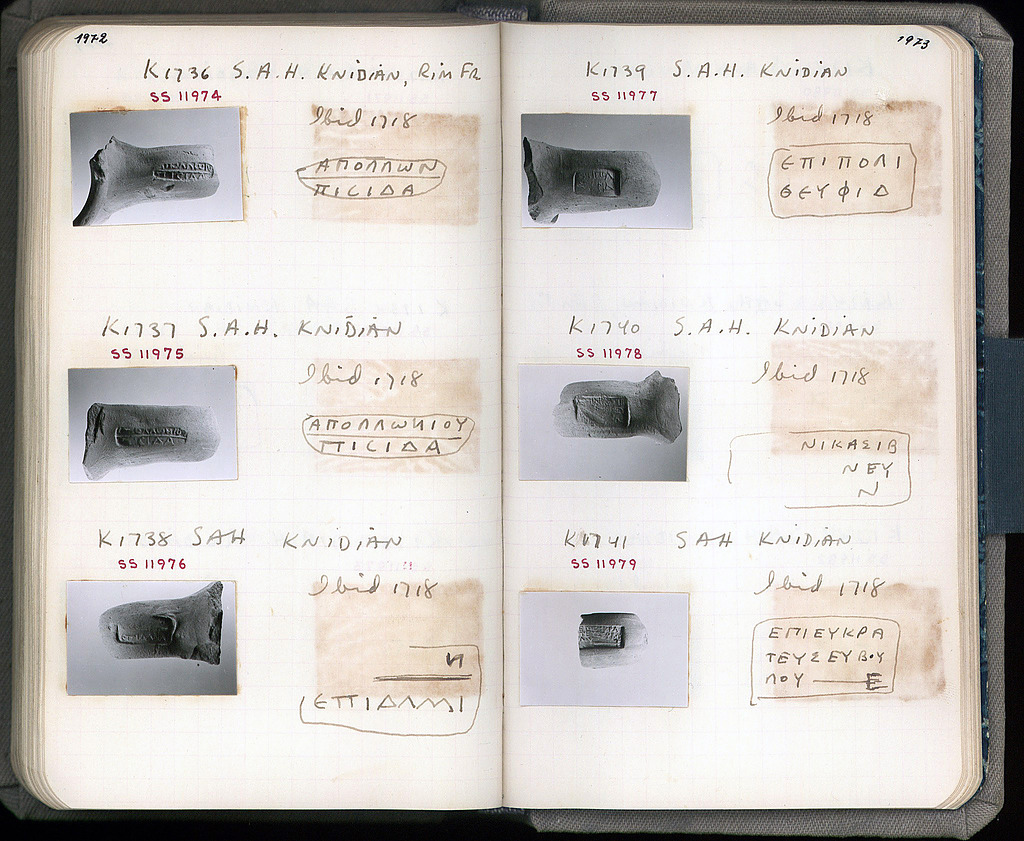 1972
K1736 S.A.H. KNIDIAN, RIM FR
SS 11974
Ibid 1718
ΑΠΟΛΛΩΝ
ΠΙCΙΔΑ
K1737 S.A.H. KNIDIAN
SS 11975
Ibid 1718
ΑΠΟΛΛΩΝΙΟΥ
ΠΙCΙΔΑ
K1738 SAH KNIDIAN
SS 11976
Ibid 1718
И
ΕΠΙΔΑΜΙ
1973
K1739 S.A.H. KNIDIAN
SS 11977
Ibid 1718
ΕΠΙΠΟΛΙ
ΘΕΥΦΙΔ
K1740 S.A.H. KNIDIAN
SS 11978
Ibid 1718
ΝΙΚΑΣΙΒ
ΝΕΥ
Ν
K1741 SAH KNIDIAN
SS 11979
Ibid 1718
ΕΠΙΕΥΚΡΑ
ΤΕΥΣΕΥΒΟΥ
ΛΟΥ